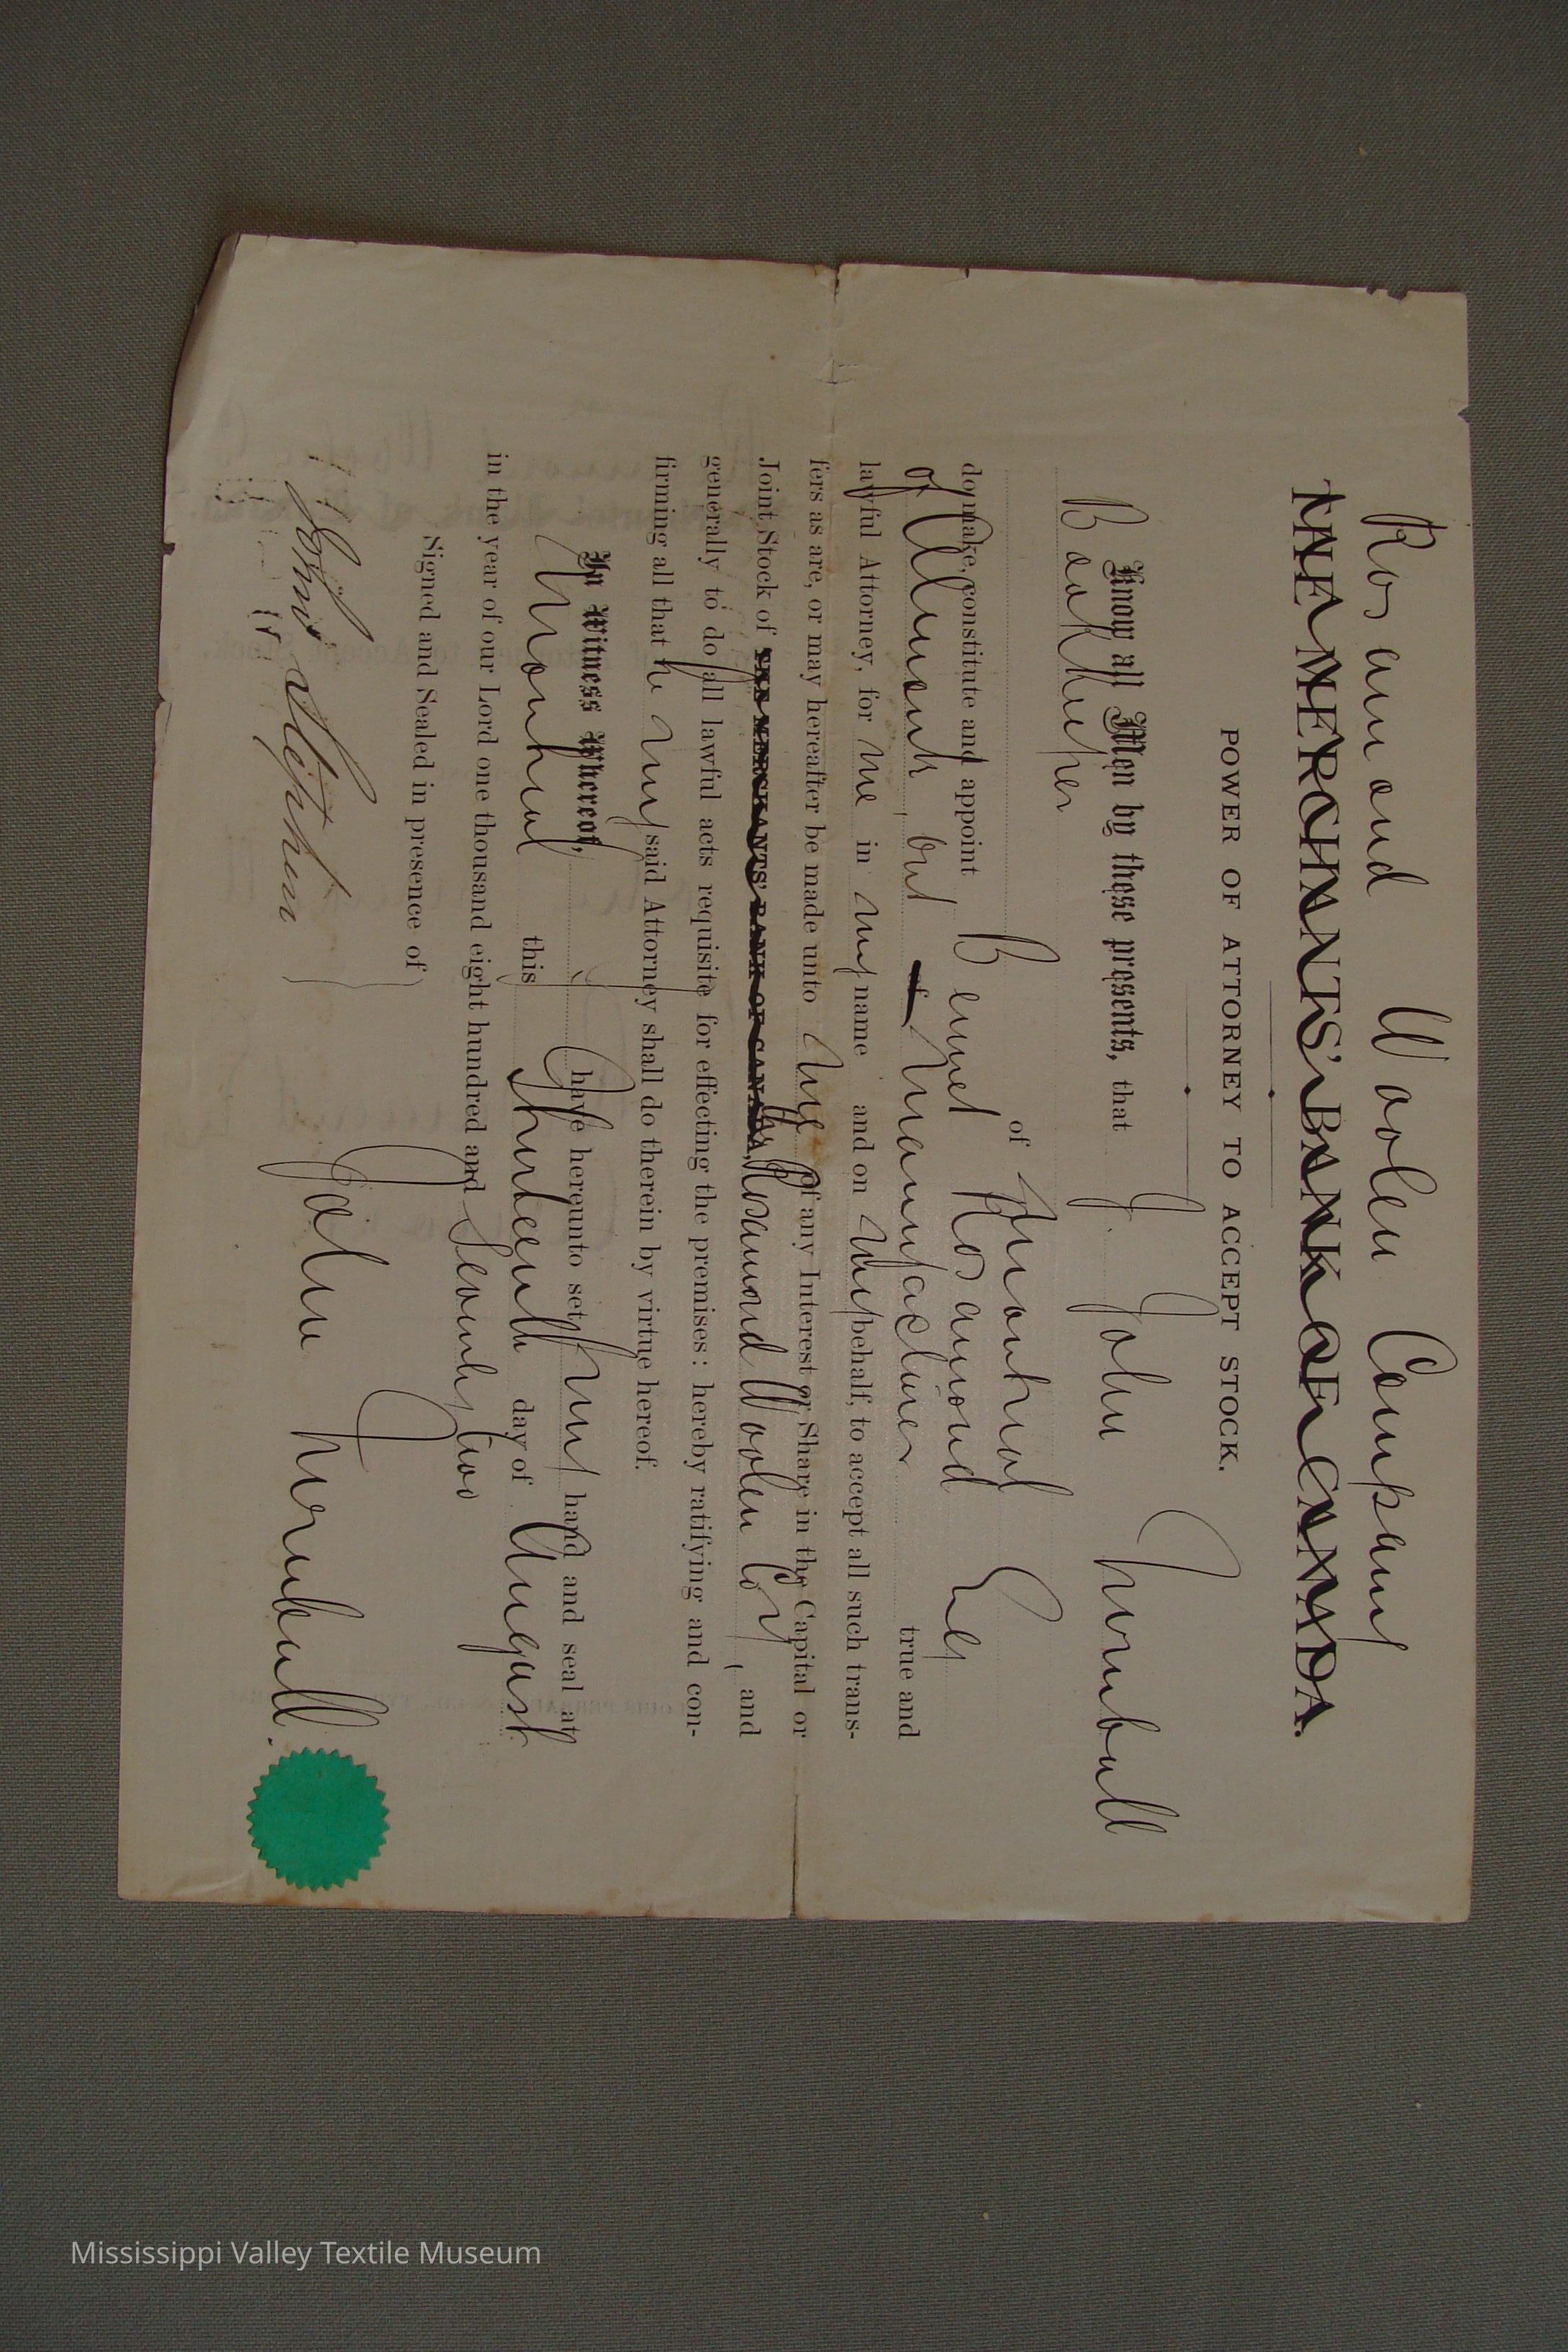 Rosamond Woolen Company
THE MERCHANTS' BANK OF CANADA.
POWER OF ATTORNEY TO ACCEPT STOCK.
Know all Men by these presents, that I John Turnbull
Bookkeeper
of Montreal
do make, constitute and appoint Bennet Rosamond Esq
of Almonte, Ont Manufacturer true and
lawful Attorney, for me in my name and on my behalf, to accept all such trans-
fers as are, or may hereafter be made unto me of any Interest or Share in the Capital or
Joint Stock of THE MERCHANTS' BANK OF CANADA, the Rosamond Woolen Coy, and
generally to do all lawful acts requisite for effecting the premises: hereby ratifying and con-
firming all that he my said Attorney shall do therein by virtue hereof.
In Witness Whereof, I have hereunto set my hand and seal at
Montreal this Thirteenth day of August
in the year of our Lord one thousand eight hundred and Seventy two
Signed and Sealed in presence of
John Stephen
John Turnbull.
Mississippi Valley Textile Museum